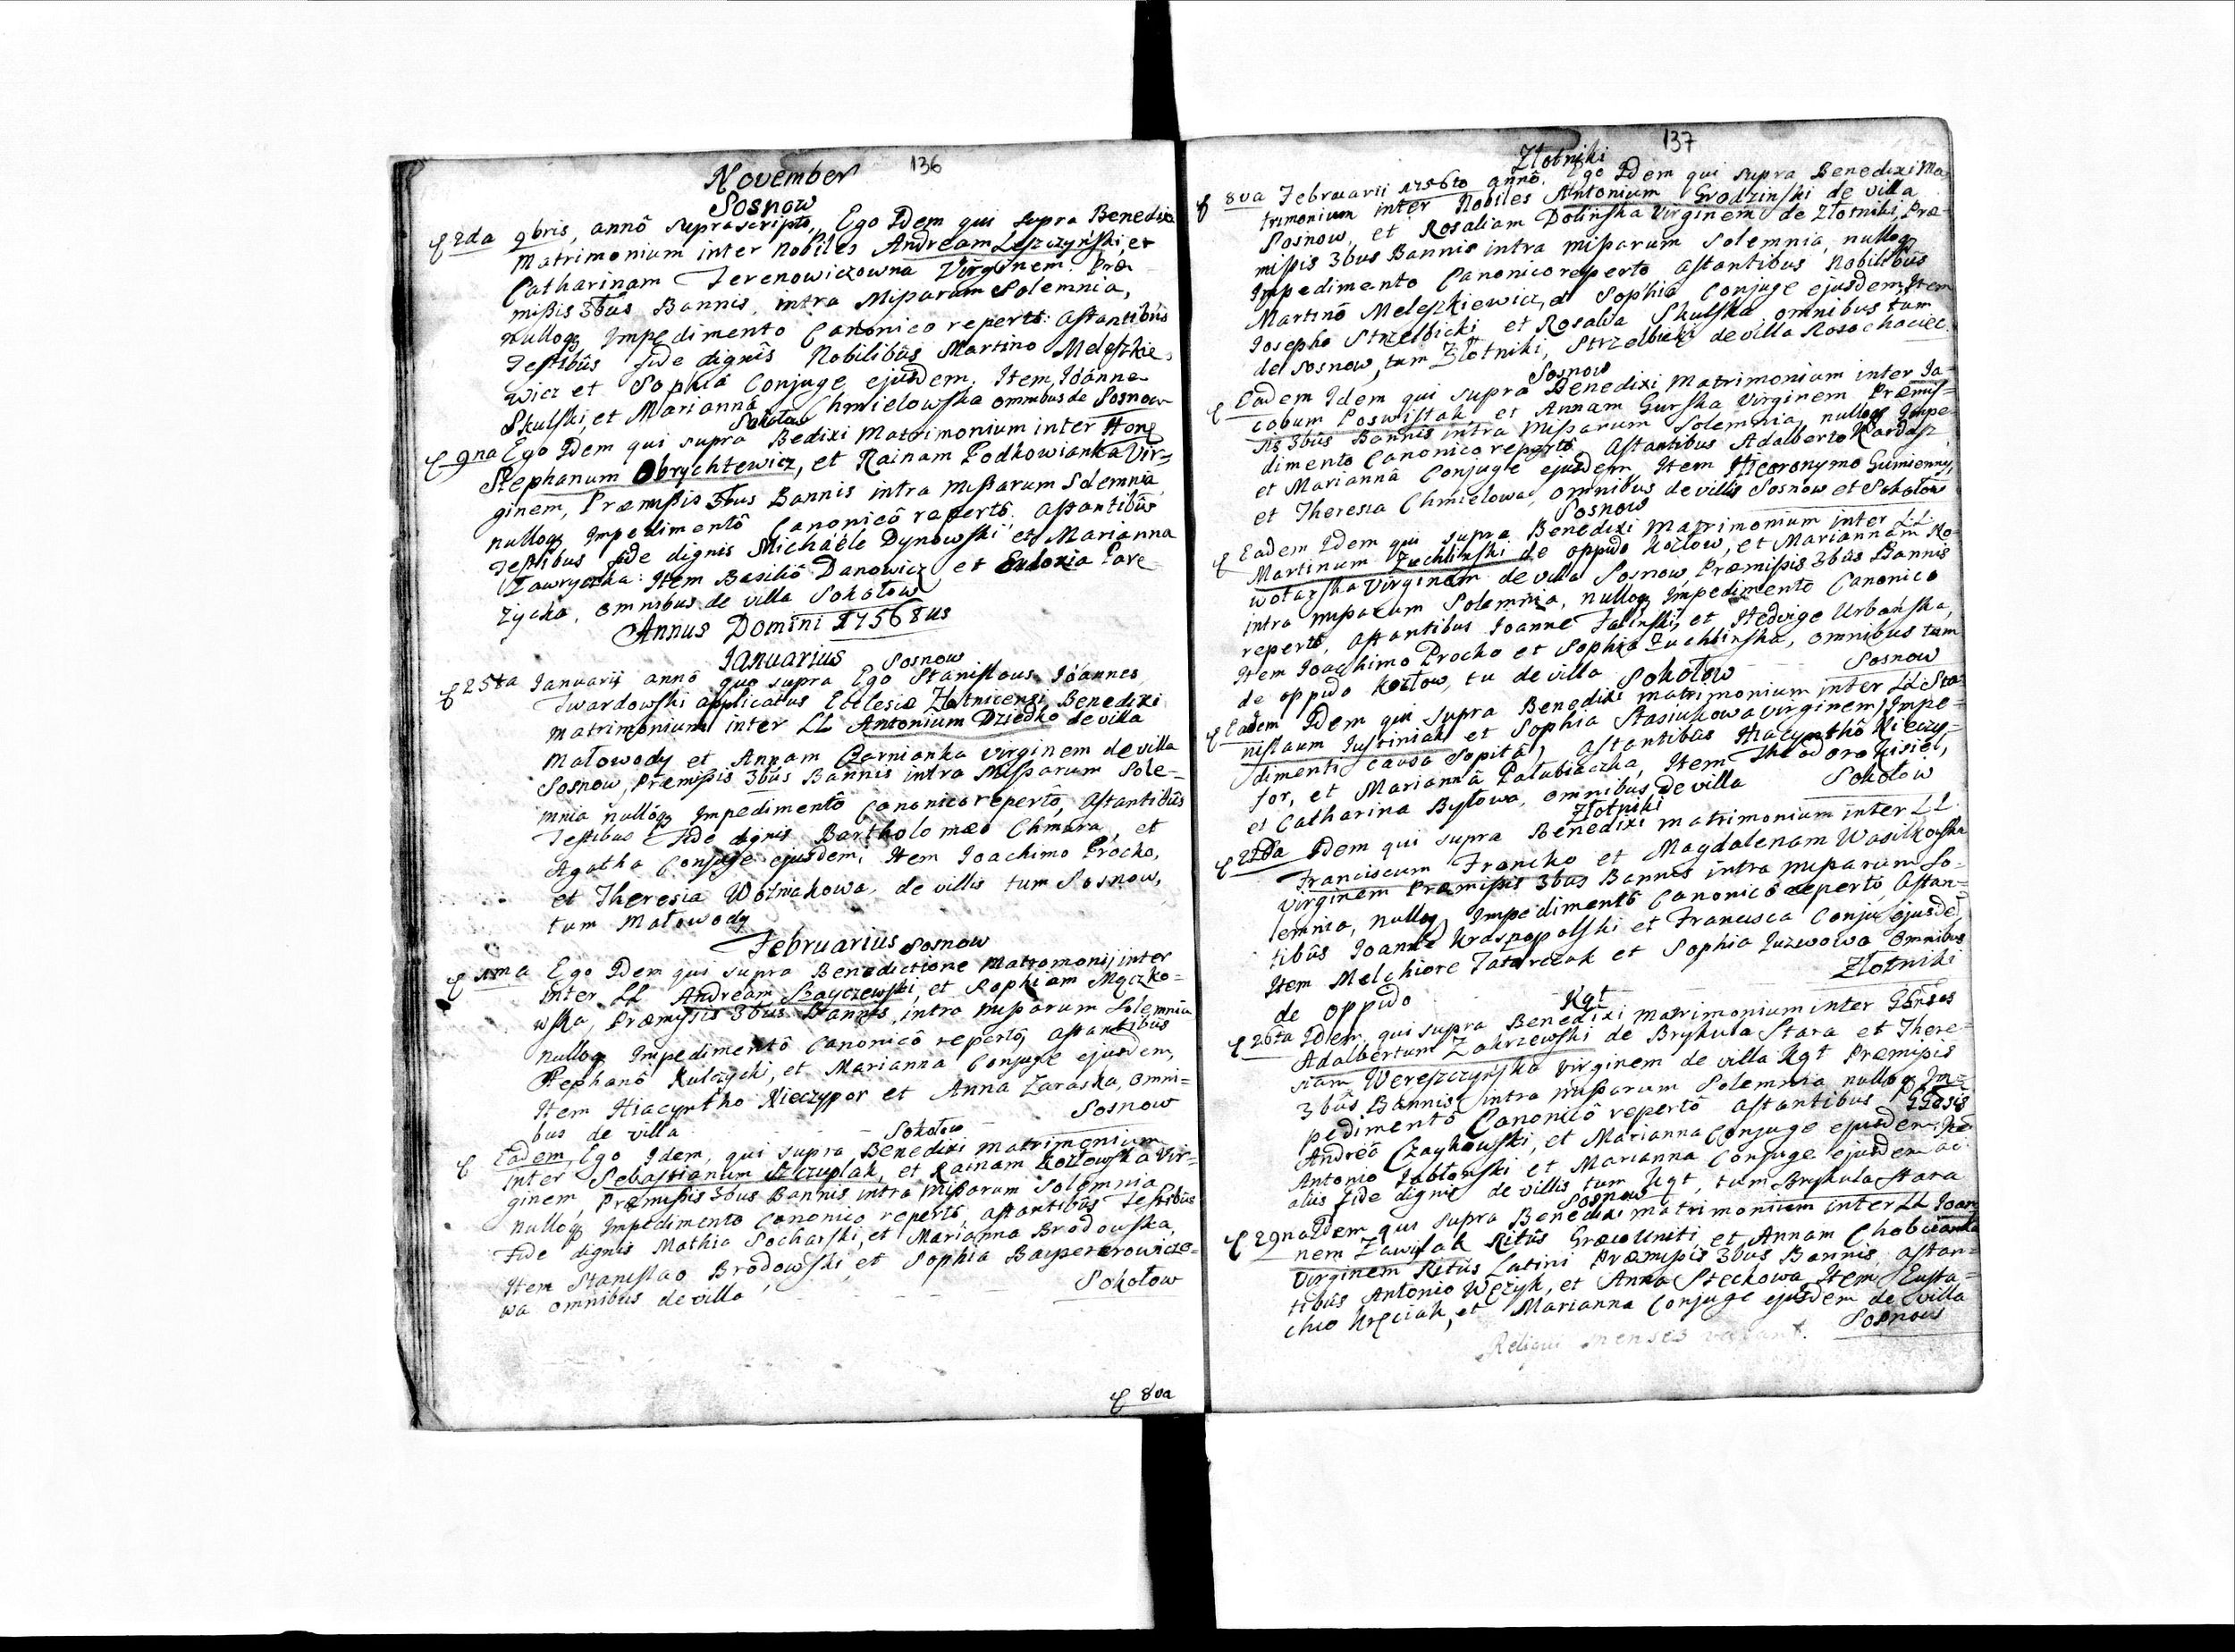 136
November
Sosnow
2da 9bris, annô suprascripto, Ego Idem qui supra Benedixi
Matrimonium inter Nobiles Andream Leszczyński et
Catharinam Terenowiczowna Virginem. Præ
missis 3bus Bannis, intra Missarum Solemnia,
nulloq Impedimento Canonico reperto: astantibus
Testibus fide dignis Nobilibus Martino Meleszkie
wicz et Sophia Conjuge ejusdem. Item, Joanne
Skulski, et Marianna Chmielowska omnibus de Sosnow
Sokołow
9na Ego Idem qui supra Bedixi Matrimonium inter Hone
Stephanum Obrychtewicz, et Rainam Podkowianka Vir=
ginem, Præmissis 3bus Bannis intra Missarum Solemnia
nulloq Impedimentô Canonicô repertô. astantibus
Testibus fide dignis Michaele Dynowski et Marianna
Ławryczka: Item Basiliô Danowicz et Eudoxia Pare
życka, omnibus de villa Sokołow
Annus Domini 1756tus
Januarius Sosnow
25ta Januarij annô quo supra Ego Stanislaus Joannes
Twardowski applicatus Ecclesiæ Złotnicensi Benedixi
matrimonium inter LL Antonium Dziedko de villa
Małowody et Annam Czarnianka virginem de villa
Sosnow, Præmissis 3bus Bannis intra Missarum Sole=
mnia nulloq Impedimentô Canonico repertô, Astantibus
Testibus Fide dignis Bartholomæo Chmura, et
Agatha Conjuge ejusdem, Item Joachimo Procko,
et Theresia Wozniakowa, de villis tum Sosnow,
tum Małowody
Februarius Sosnow
1ma Ego Idem qui supra Benedictione Matromonij inter
inter LL Andream Szayczewski, et Sophiam Mączko=
wska, Præmissis 3bus Bannis, intra Missarum Solemnia
nulloq Impedimentô Canonicô repertô, astantibus
Stephanô Kulczycki, et Marianna Conjuge ejusdem,
Item Hiacyntho Nieczypor et Anna Zaraska, omni=
bus de villa Sosnow
Sokołow
Eadem Ego Idem, qui supra Benedixi matrimonium
inter Sebastianum Szczuplak, et Rainam Kozłowska Vir=
ginem, Præmissis 3bus Bannis intra Missarum Solemnia
nulloq Impedimento Canonico repertô, astantibus Testibus
Fide dignis Mathia Socharski, et Marianna Brodowska
Item Stanislao Brodowski et Sophia
wa omnibus de villa Sokołow
8va
137
Złotniki
8va Februarii 1756to annô. Ego Idem qui supra Benedixi Ma
trimonium inter Nobiles Antonium Grodzinski de villa
Sosnow, et Rosaliam Dolinska Virginem de Złotniki, Præ=
missis 3bus Bannis intra missarum Solemnia, nulloq
Impedimento Canonico reperto astantibus Nobilibus
Martinô Meleszkiewicz, et Sophia Conjuge ejusdem, Item
Josepho Strzelbicki et Rosalia Skulska omnibus tum
de Sosnow, tum Złotniki, Strzelbicki de villa Rosochaciec.
Sosnow
Eadem Idem qui supra Benedixi Matrimonium inter Ja=
cobum Poswistak et Annam Gurska Virginem Præmis=
sis 3bus Bannis intra Missarum Solemnia, nulloq Impe=
dimento Canonico repertô Astantibus Adalberto Kardasz
et Mariannâ Conjuge ejusdem, Item Hieronymo Gumienny,
et Theresia Chmielowa, omnibus de villis Sosnow et Sokołow
Sosnow
Eadem Idem qui supra Benedixi Matrimonium inter LL.
Martinum Zuchlinski de oppido Kozłow, et Mariannam No=
wotarska Virginem de villa Sosnow, Præmissis 3bus Bannis
intra missarum Solemnia, nulloq Impedimento Canonico
repertô, Astantibus Joanne Falinski, et Hedvige Urbanska,
Item Joachimo Procko et Sophia Zuchlinska, omnibus tum
de oppido Kozłow, tu de villa Sosnow
Sokołow
Eadem Idem qui supra Benedixi matrimonium inter LL Sta=
nislaum Justiniak et Sophia Stasiukowa virginem, Impe=
dimenti causa sopita, astantibus Hiacynthô Nieczy=
for, et Mariannâ Pałubiaczka, Item Theodoro Kisiel,
et Catharina Byłowa, omnibus de villa Sokołow
Złotniki
Idem qui supra Benedixi matrimonium inter LL
Franciscum Francko et Magdalenam Wasilkowska
virginem Præmissis 3bus Bannis intra Missarum So=
lemnia, nulloq Impedimentô Canonicô repertô, Astan=
tibus Joanne Kraspopolski et Francisca Conju ejusde
Item Melchiore Tatarczuk et Sophia Juzwowa omnibus
de oppido Złotniki
Kąt
26ta Idem, qui supra Benedixi matrimonium inter Gnses
Adalbertum Zakrzewski de Brykula Stara et There=
siam Wereszczynska virginem de villa Kąt Præmissis
3bus Bannis intra missarum Solemnia nulloq Im=
pedimentô Canonicô repertô astantibus Gnsis
Andreâ Czaykowski, et Marianna Conjuge ejusdem, Ite
Antonio Jabłonski et Marianna Conjuge ejusdem ac
aliis fide dignis de villis tum Kąt, tum Brykula Stara
Sosnow
29na Idem qui supra Benedixi matrimonium inter LL Joan
nem Zawislak Ritûs Græco Uniti, et Annam Chobcianka
Virginem Ritûs Latini Præmissis 3bus Bannis, astan=
tibus Antonio Wężyk, et Anna Steckowa Item Eusta=
chio Kręciak, et Marianna Conjuge ejusdem de villa
Sosnow
Reliqui menses vacant.